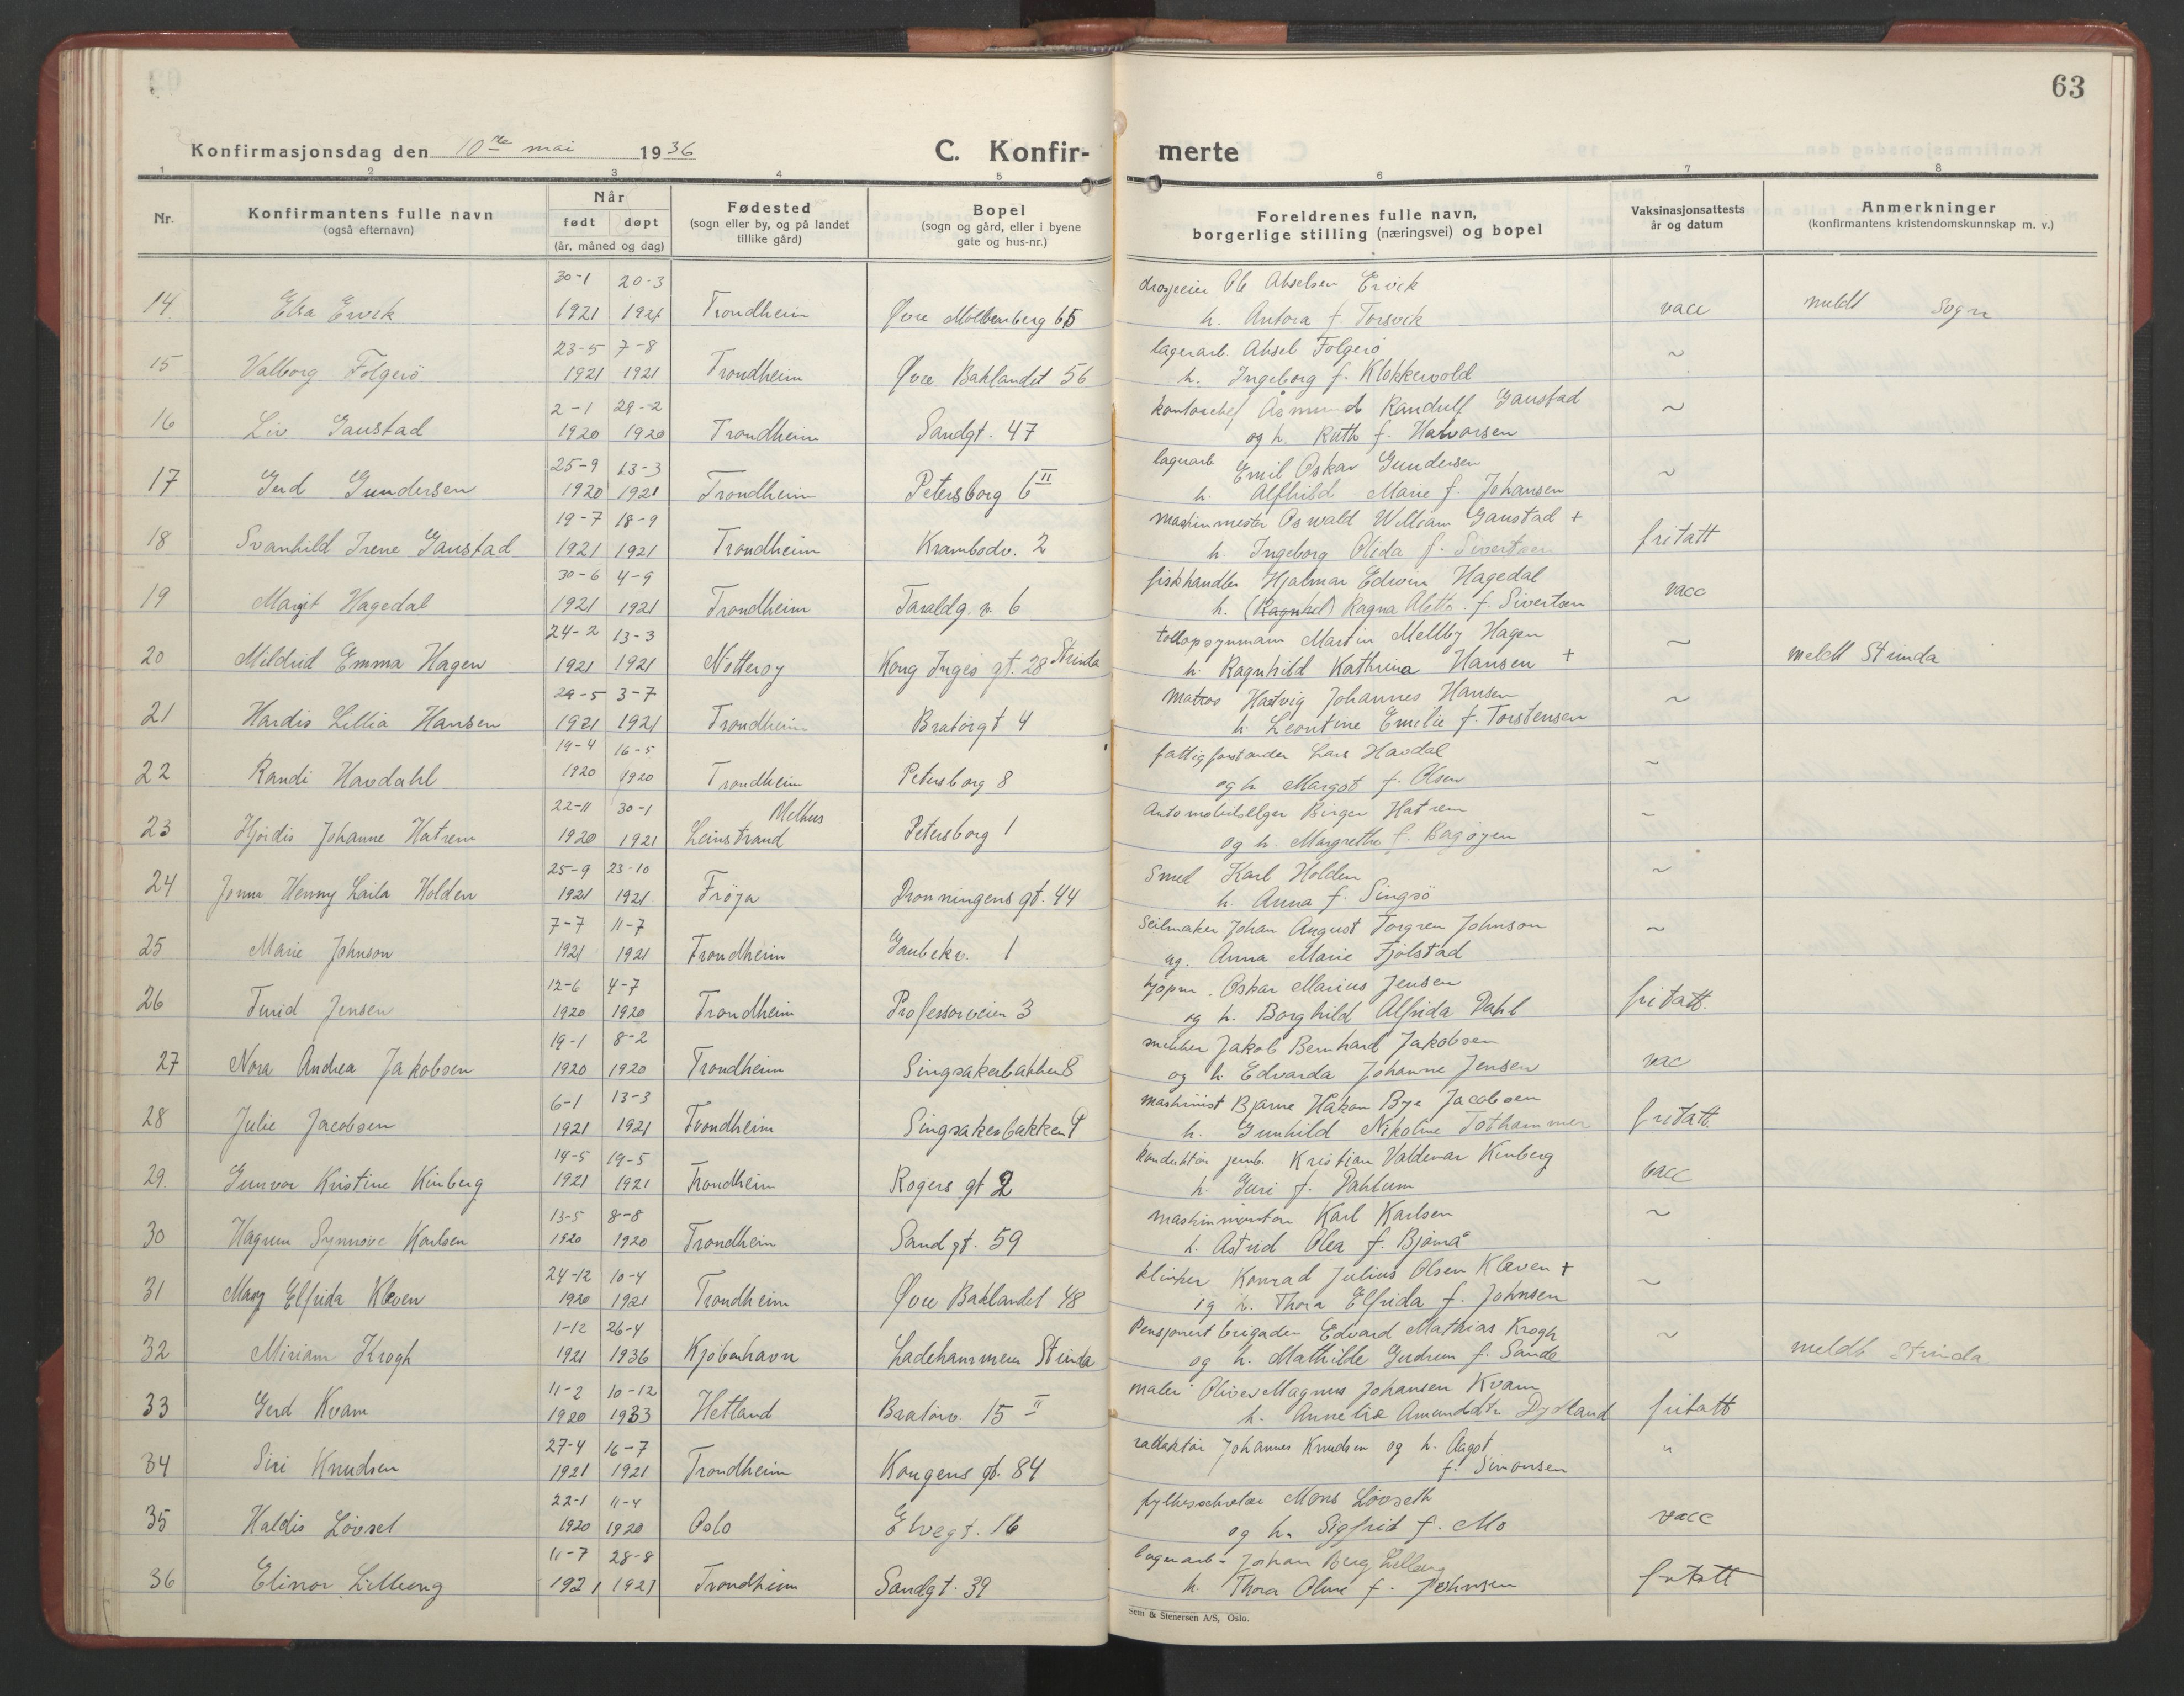 63
Konfirmasjonsdag den 10de mai 1936
C. Konfir- merte
1 2 3 4 5 6 7 8
Nr.
Konfirmantens fulle navn
(også efternavn)
Når
født døpt
(år, måned og dag)
Fødested
(sogn eller by, og på landet
tillike gård)
Bopel
(sogn og gård, eller i byene
gate og hus-nr.)
Foreldrenes fulle navn,
borgerlige stilling (næringsvei) og bopel
Vaksinasjonsattests
år og datum
Anmerkninger
(konfirmantens kristendomskunnskap m. v.)
30-1 20-3 Ole Akselsen Ervik
14 Elsa Ervik 1921 1921 Trondheim Øvre Møllenberg 65 h. Antora f. Torsvik vacc meldt Sogn
23-5 7-8 lagerarb. Aksel Folgerö
15 Valborg Folgerö 1921 1921 Trondheim Øvre Baklandet 56 h. Ingeborg f. Klokkervold ~
2-1 29-2 kontorchef Åsmund Randulf Gaustad
16 Liv Gaustad 1920 1920 Trondheim Sandgt. 47 og h. Ruth f. Halvorsen ~
25-9 13-3 lagerarb Emil Oskar Gundersen
17 Gerd Gundersen 1920 1921 Trondheim Petersborg 6 II h. Alfhild Marie f. Johansen ~
19-7 18-9 maskinmester Oswald William Gaustad +
18 Svanhild Irene Gaustad 1921 1921 Trondheim Krambodv. 2 h. Ingeborg Olida f. Sivertsen fritatt
30-6 4-9 fiskhandler Hjalmar Edwin Hagedal
19 Margit Hagedal 1921 1921 Trondheim Taraldg. v. 6 h. (Ragnhil) Ragna Aletta f. Sivertsen vacc
24-2 13-3 tollopsynmann Martin Mellby Hagen
20 Mildrid Emma Hagen 1921 1921 Nøtterøy Kong Inges gt. 28 Strinda h. Ragnhild Kathrina Hansen + ~ meldt Strinda
29-5 3-7 Matros Hartvig Johannes Hansen
21 Hardis Lillia Hansen 1921 1921 Trondheim Bratörgt 4 h. Leontine Emilie f. Torstensen ~
19-4 16-5 fattigforstander Lars Havdal
22 Randi Havdahl 1920 1920 Trondheim Petersborg 8 og h Margot f. Olsen ~
22-11 30-1 Melhus Automobilselger Birger Hatrem
23 Hjördis Johanne Hatrem 1920 1921 Leinstrand Petersborg 1 og h. Margrethe f. Bagøyen ~
25-9 23-10 Smed Karl Holden
24 Henny Laila Holden 1921 1921 Frøya Dronningens gt. 44 h. Anna f. Singsö ~
7-7 11-7 Seilmaker Johan August Torgren Johnson
25 Marie Johnson 1921 1921 Trondheim Gaubekv. 1 ug. Anna Marie Fjölstad ~
12-6 4-7 kjøpm. Oskar Marius Jensen
26 Turid Jensen 1920 1920 Trondheim Professorveien 3 og h. Borghild Alfrida Dahl fritatt.
19-1 8-2 Jakob Bernhard Jakobsen
27 Nora Andrea Jakobsen 1920 1920 Trondheim Singsakerbakken 8 og h. Edvarda Johanne Jensen vac
6-1 13-3 maskinist Bjarne Håkon Bye Jacobsen
28 Julie Jacobsen 1921 1921 Trondheim Singsakerbakken 9 h. Gunhild Nikoline Tothammer fritatt.
14-5 19-5 konduktør jernb. Kristian Valdemar Kinberg
29. Gunvor Kristine Kinberg 1921 1921 Trondheim Rogers gt 2 h. Guri f. Dahlum vacc
13-5 8-8 maskinmontør Karl Karlsen
30 Synnøve Karlsen 1920 1920 Trondheim Sandgt. 59 h. Astrid Olea f. Bjørnå ~
24-12 10-4 klinker Konrad Julius Olsen Kleven +
31 Mary Elfrida Kleven 1920 1921 Trondheim Øvre Baklandet 48 og h. Thora Elfrida f. Johnsen ~
1-12 26-4 Pensjonert brigader Edvard Mathias Krogh
32 Miriam Krogh 1921 1936 Kjøbenhavn Ladehammeren Strinda og h. Mathilde Gudrun f. Sande ~ meldt Strinda
11-2 10-12 maler Oliver Magnus Johansen Kvam
33 Gerd Kvam 1920 1933 Hetland Braatørv. 15 II h. Annelise Amundsdtr. Dydland fritatt
27-4 16-7 redaktör Johannes Knudsen og h. Aagot
34 Siri Knudsen 1921 1921 Trondheim Kongens gt. 84 f. Simonsen "
22-1 11-4 fylkessekretær Mons Lövseth
35 Haldis Lövset 1920 1920 Oslo Elvegt. 16 og h. Sigfrid f. Mo vacc
11-7 28-8 lagerarb. Johan Berg Lilleeng
36 Elinor Lilleeng 1921 1921 Trondheim Sandgt. 39 h. Thora Oline f. Johnsen fritatt
Sem & Stenersen A/S, Oslo.